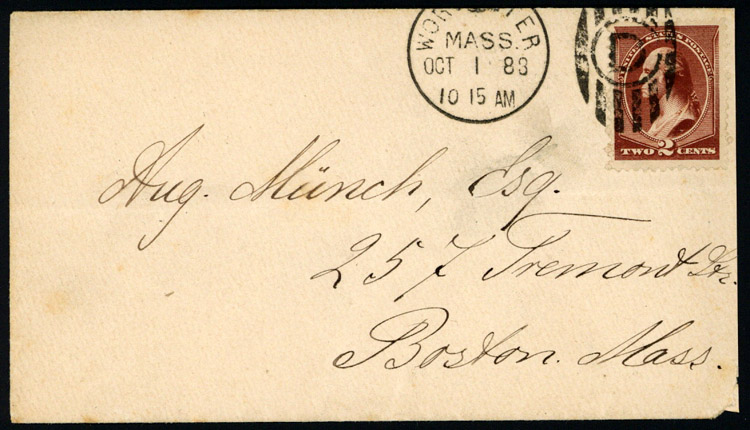 WORCESTER
MASS.
OCT 1 83
10 15 AM
UNITED STATES POSTAGE
TWO 2 CENTS
Aug. Münch, Esq.
257 Tremont Str.
Boston. Mass.